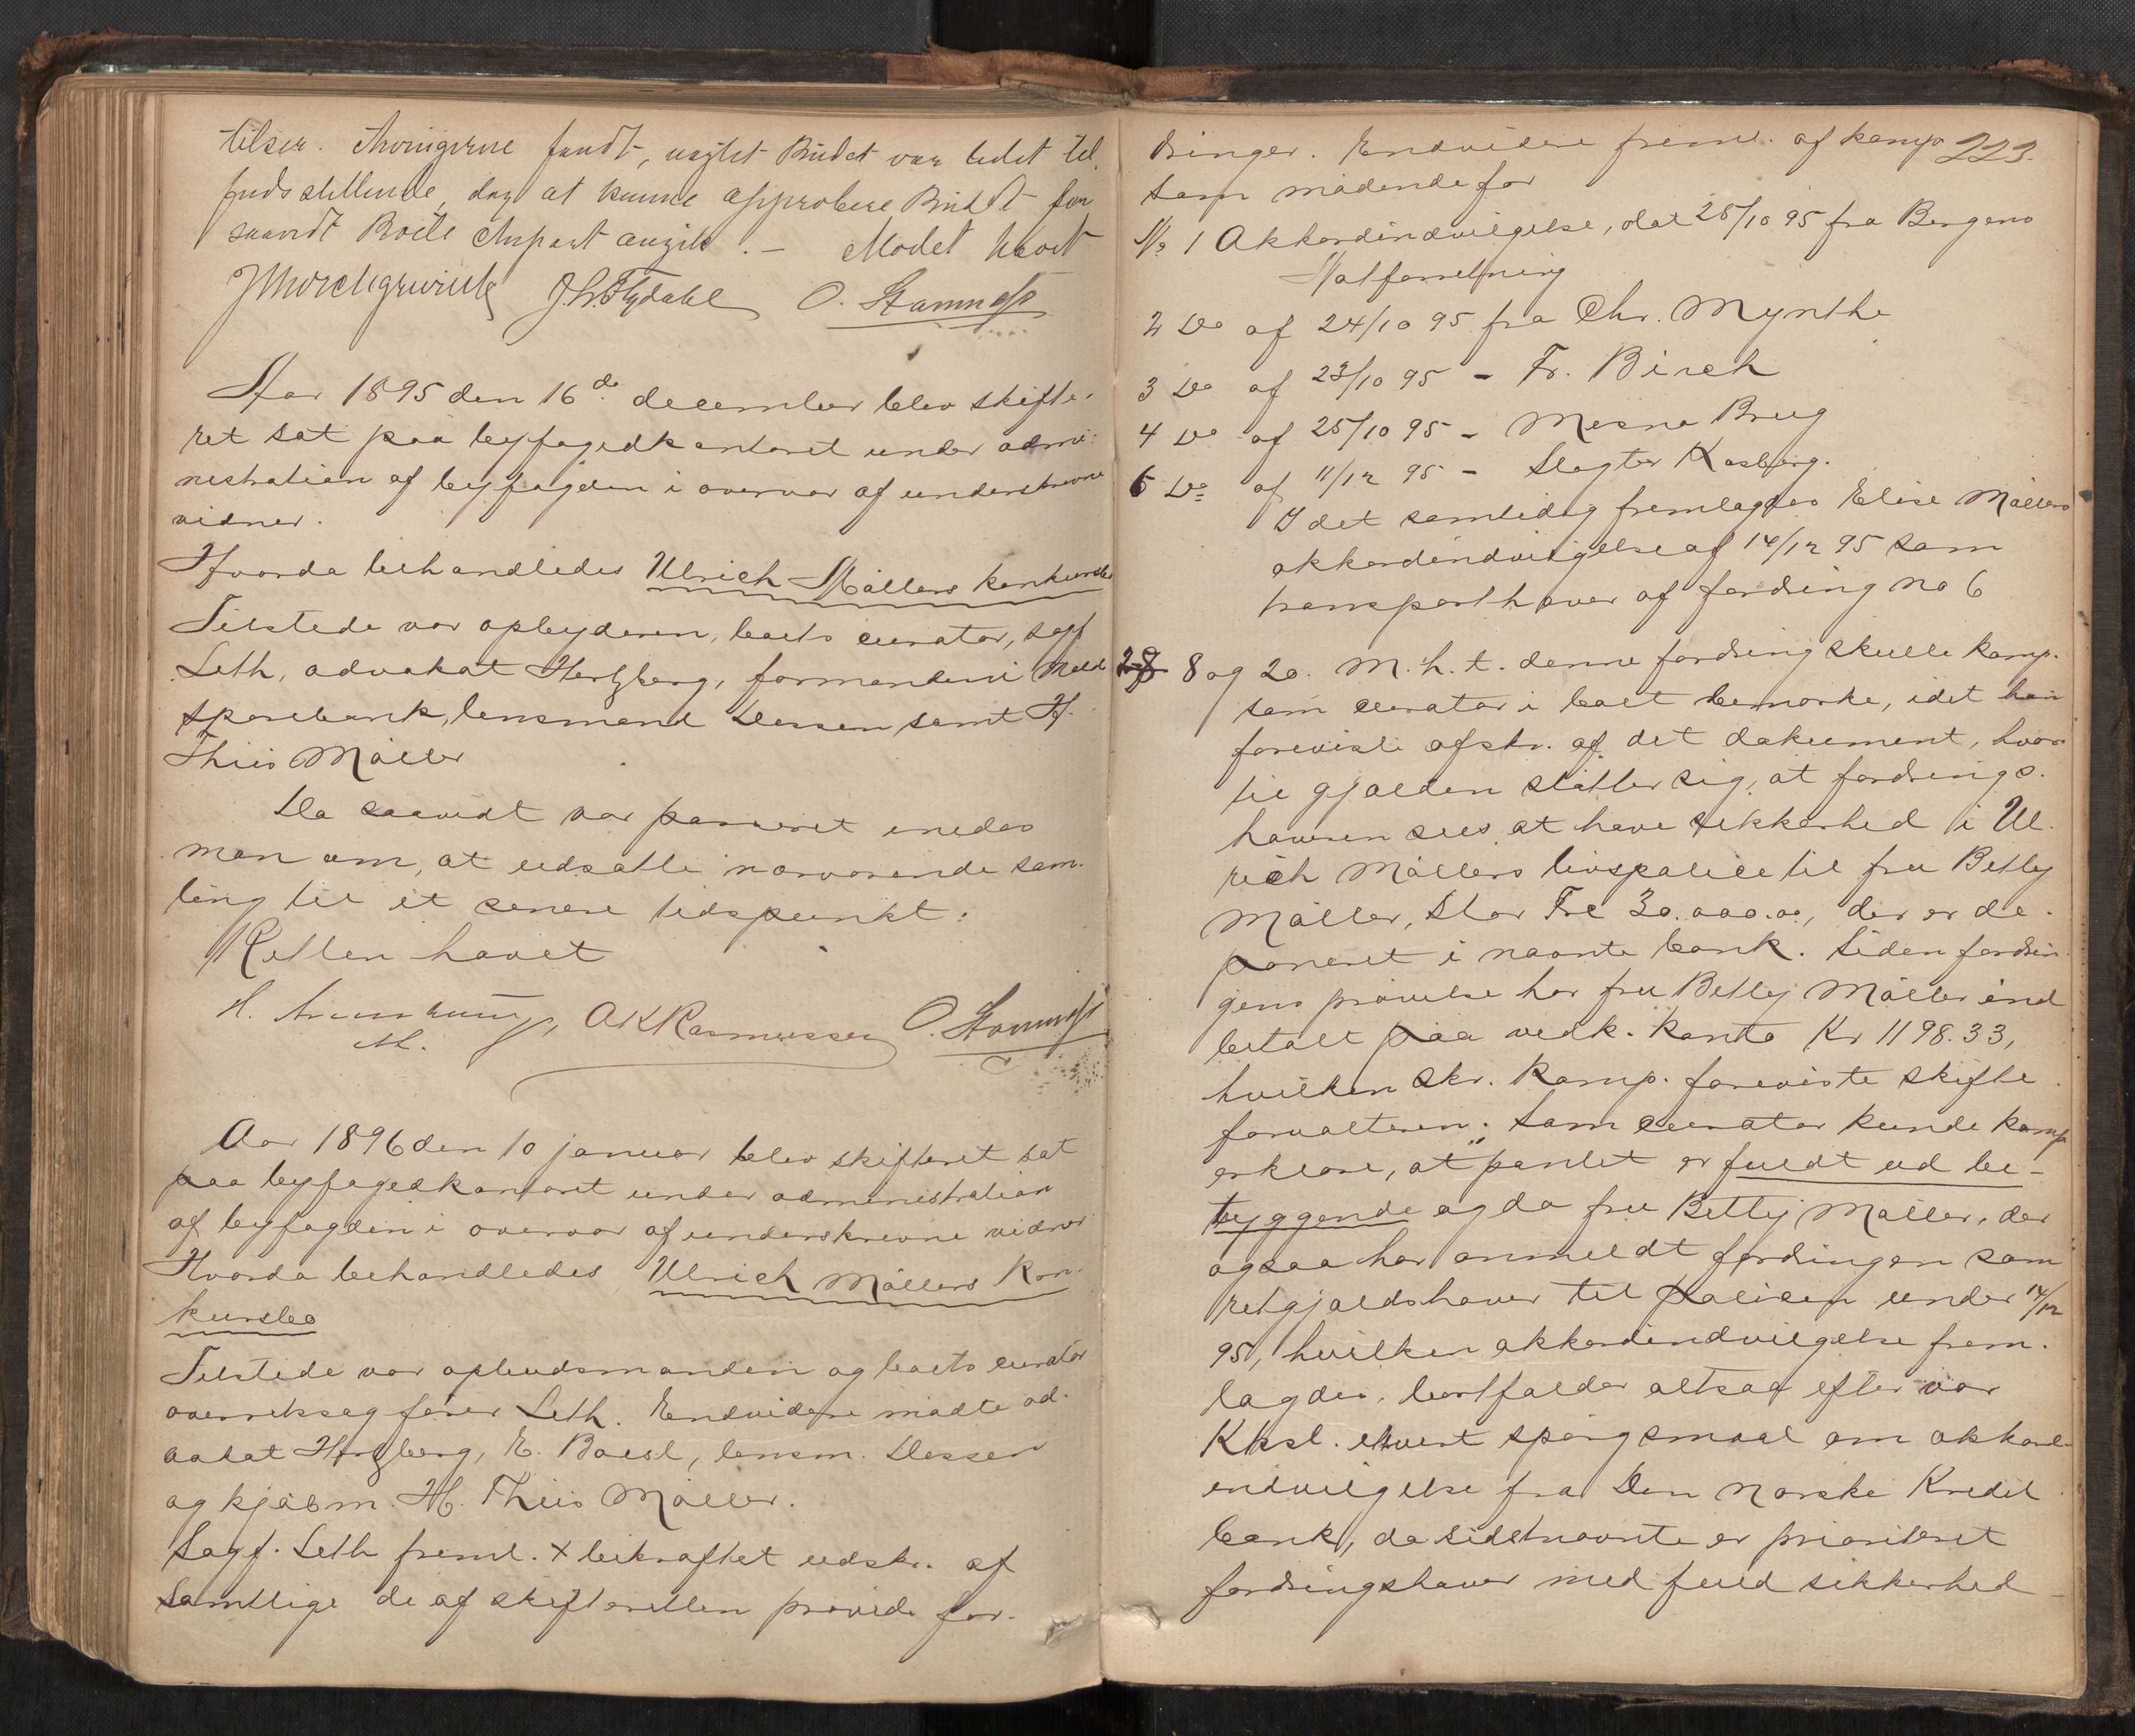 tilser. Arvingerne fandt, uagtet Budet var lidet til
fredsstillende, dog at kunne approbere Budet for
saavidt Boets Anpart angik. — Mødet hævet
J. L. Flydahl O. Stamnes
Aar 1895 den 16de december blev skifte-
ret sat paa byfogedkontoret under admi-
nistration af byfogden i overvær af underskrevne
vidner.
Hvorda behandledes Ulrich Møllers konkursbo
Tilstede var opbyderen, boets curator, sagf
Leth, advokat Hertzberg, formanden i Molde
sparebank, lensmand Dessen samt H.
Thiis Møller
Da saavidt var passeret enedes
man om, at udsætte nærværende sam-
ling til et senere tidspunkt.
Retten hævet
H. AKRasmussen O. Stamnes
Aar 1896 den 10 januar blev skifteret sat
paa byfogedkontoret under administration
af byfogden i overvær af underskrevne vidner
Hvorda behandledes Ulrich Møllers Kon-
kursbo
Tilstede var opbudsmanden og boets curator
overretssagfører Leth. Endvidere mødte ad-
vokat Hertzberg, E. Boesl, lensm. Dessen
og kjøbm. H. Thiis Møller.
Sagf. Leth freml. x bekræftet udskr. af
samtlige de af skifteretten prøvede for-
223.
dringer. Endvidere freml. af komp
som mødende for
No 1 Akkordindvilgelse, dat 25/10 95 fra Bergens
Notforretning
2 Do af 24/10 95 fra Chr. Mynthe
3 Do af 23/10 95 - Fr. Birch
4 Do af 25/10 95 - Mesna Brug
6 Do af 11/12 95 - Slagter Kasberg.
I det samtidig fremlagdes Elise Møllers
akkordindvilgelse af 14/12 95 som
transporthaver af fordring no 6
8 og 20. M. h. t. denne fordring skulle komp.
som curator i boet bemærke, idet han
foreviste afskr. af det dokument, hvor-
til gjælden støtter sig, at fordrings-
haveren sees at have sikkerhed i Ul-
rich Møllers livspolice til fru Betty
Møller, stor Frc 30.000.00, der er de-
poneret i nævnte bank. Siden fordrin-
gens prøvelse har fru Betty Møller ind
betalt paa vedk. konto Kr 1198.33,
hvilken skr. komp. foreviste skifte
forvalteren. Som curator kunde komp
erklære, at pantet er fuldt ud be-
tryggende og da fru Betty Møller, der
ogsaa har anmeldt fordringen som
retgjældshaver til policen under 14/12
95, hvilken akkordindvilgelse frem-
lagdes, bortfalder altsaa efter vor
Kksl. ethvert spørgsmaal om akkord-
indvilgelse fra Den norske Kredit
bank, da sidstnævnte er prioriteret
fordringshaver med fuld sikkerhed